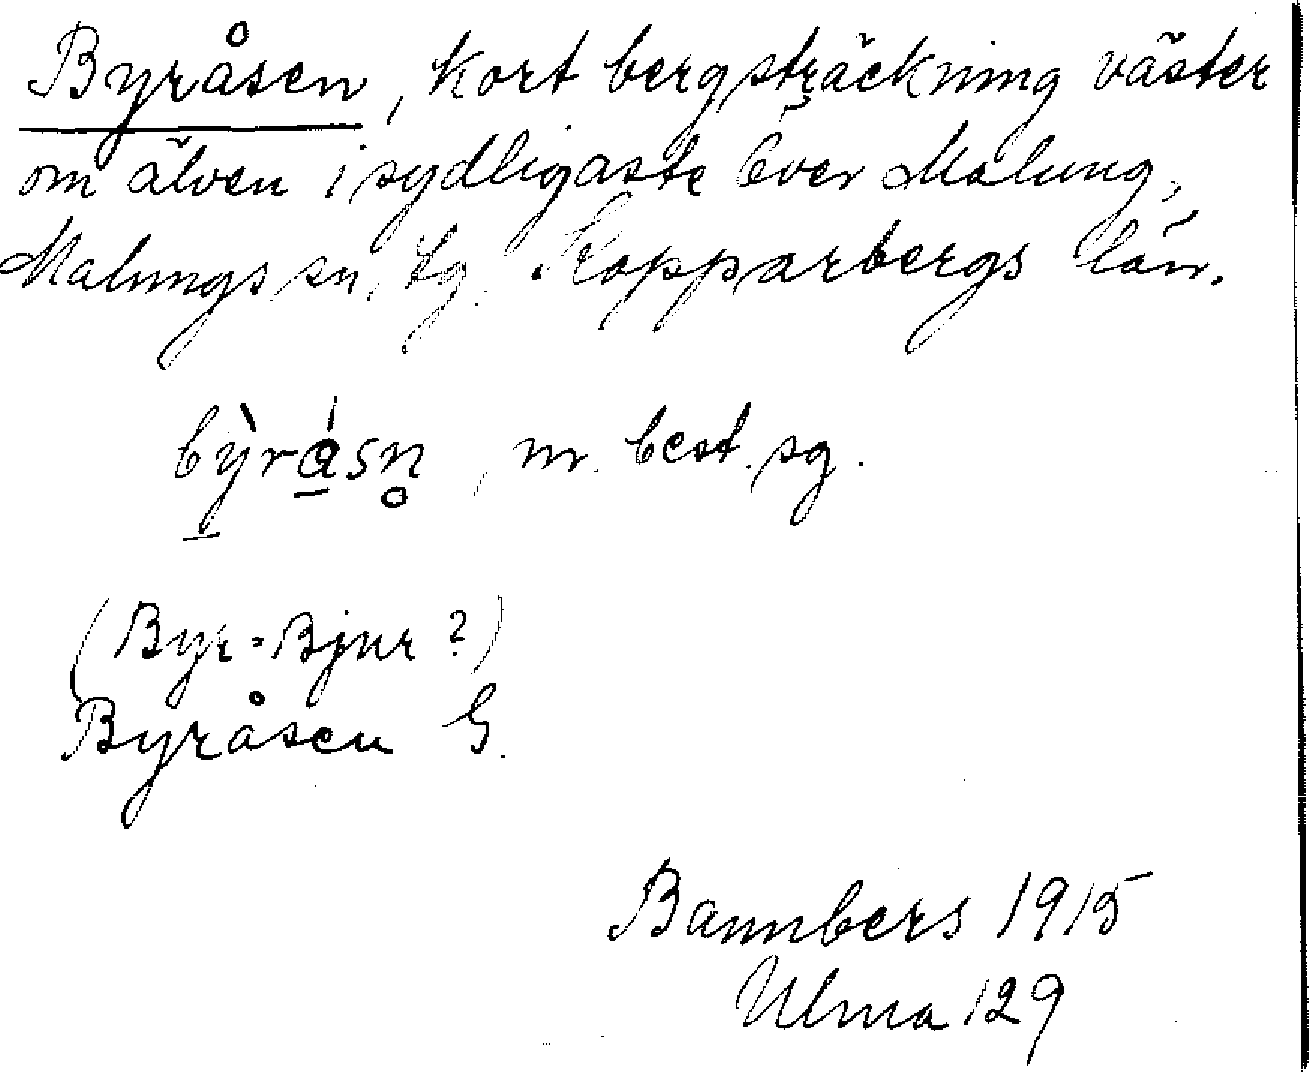 Byråsen, kort bergsträckning väster
om älven i sydligaste Över Malung,
Malungs sn, tg. Kopparbergs län.
bỳ̱rá̱sn̥, m. best. sg.
(Byr = Bjur?)
Byråsen G.
Bannbers 1915
Ulma 129